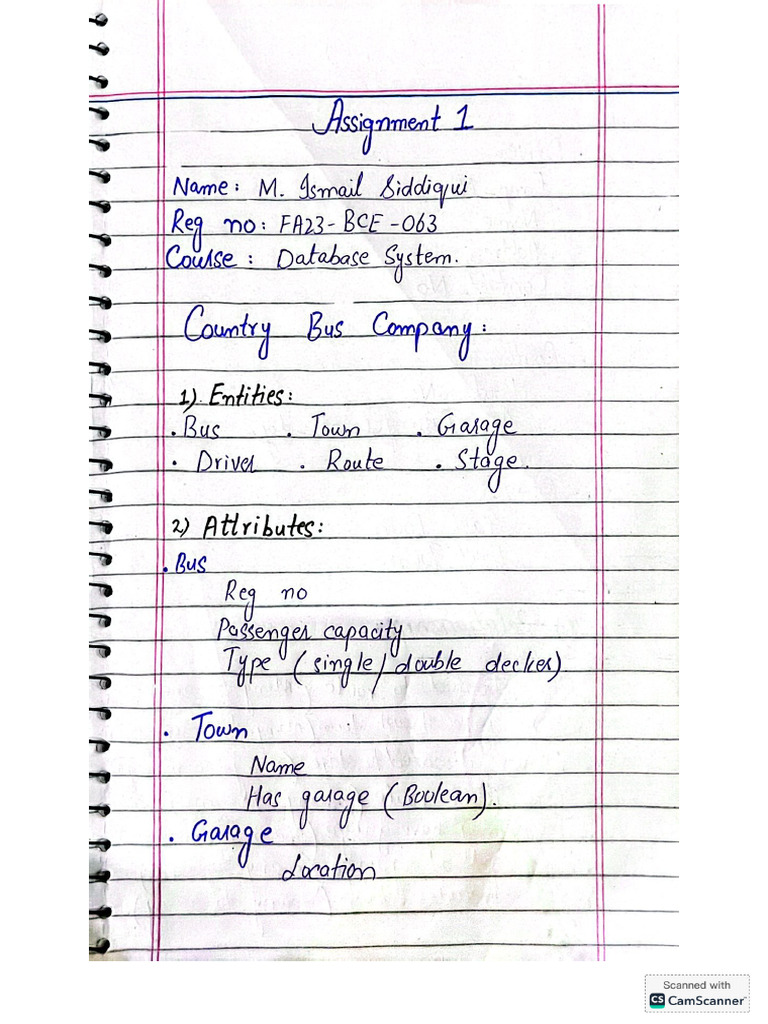 Assignment 1
Name: M. Ismail Siddiqui
Reg no: FA23-BCE-063
Course: Database System.
Country Bus Company:
1) Entities:
. Bus . Town . Garage
. Driver . Route . Stage.
2) Attributes:
. Bus
Reg no
Passenger capacity
Type (single/double decker)
. Town
Name
Has garage (Boolean).
. Garage
Location
Scanned with
CS CamScanner